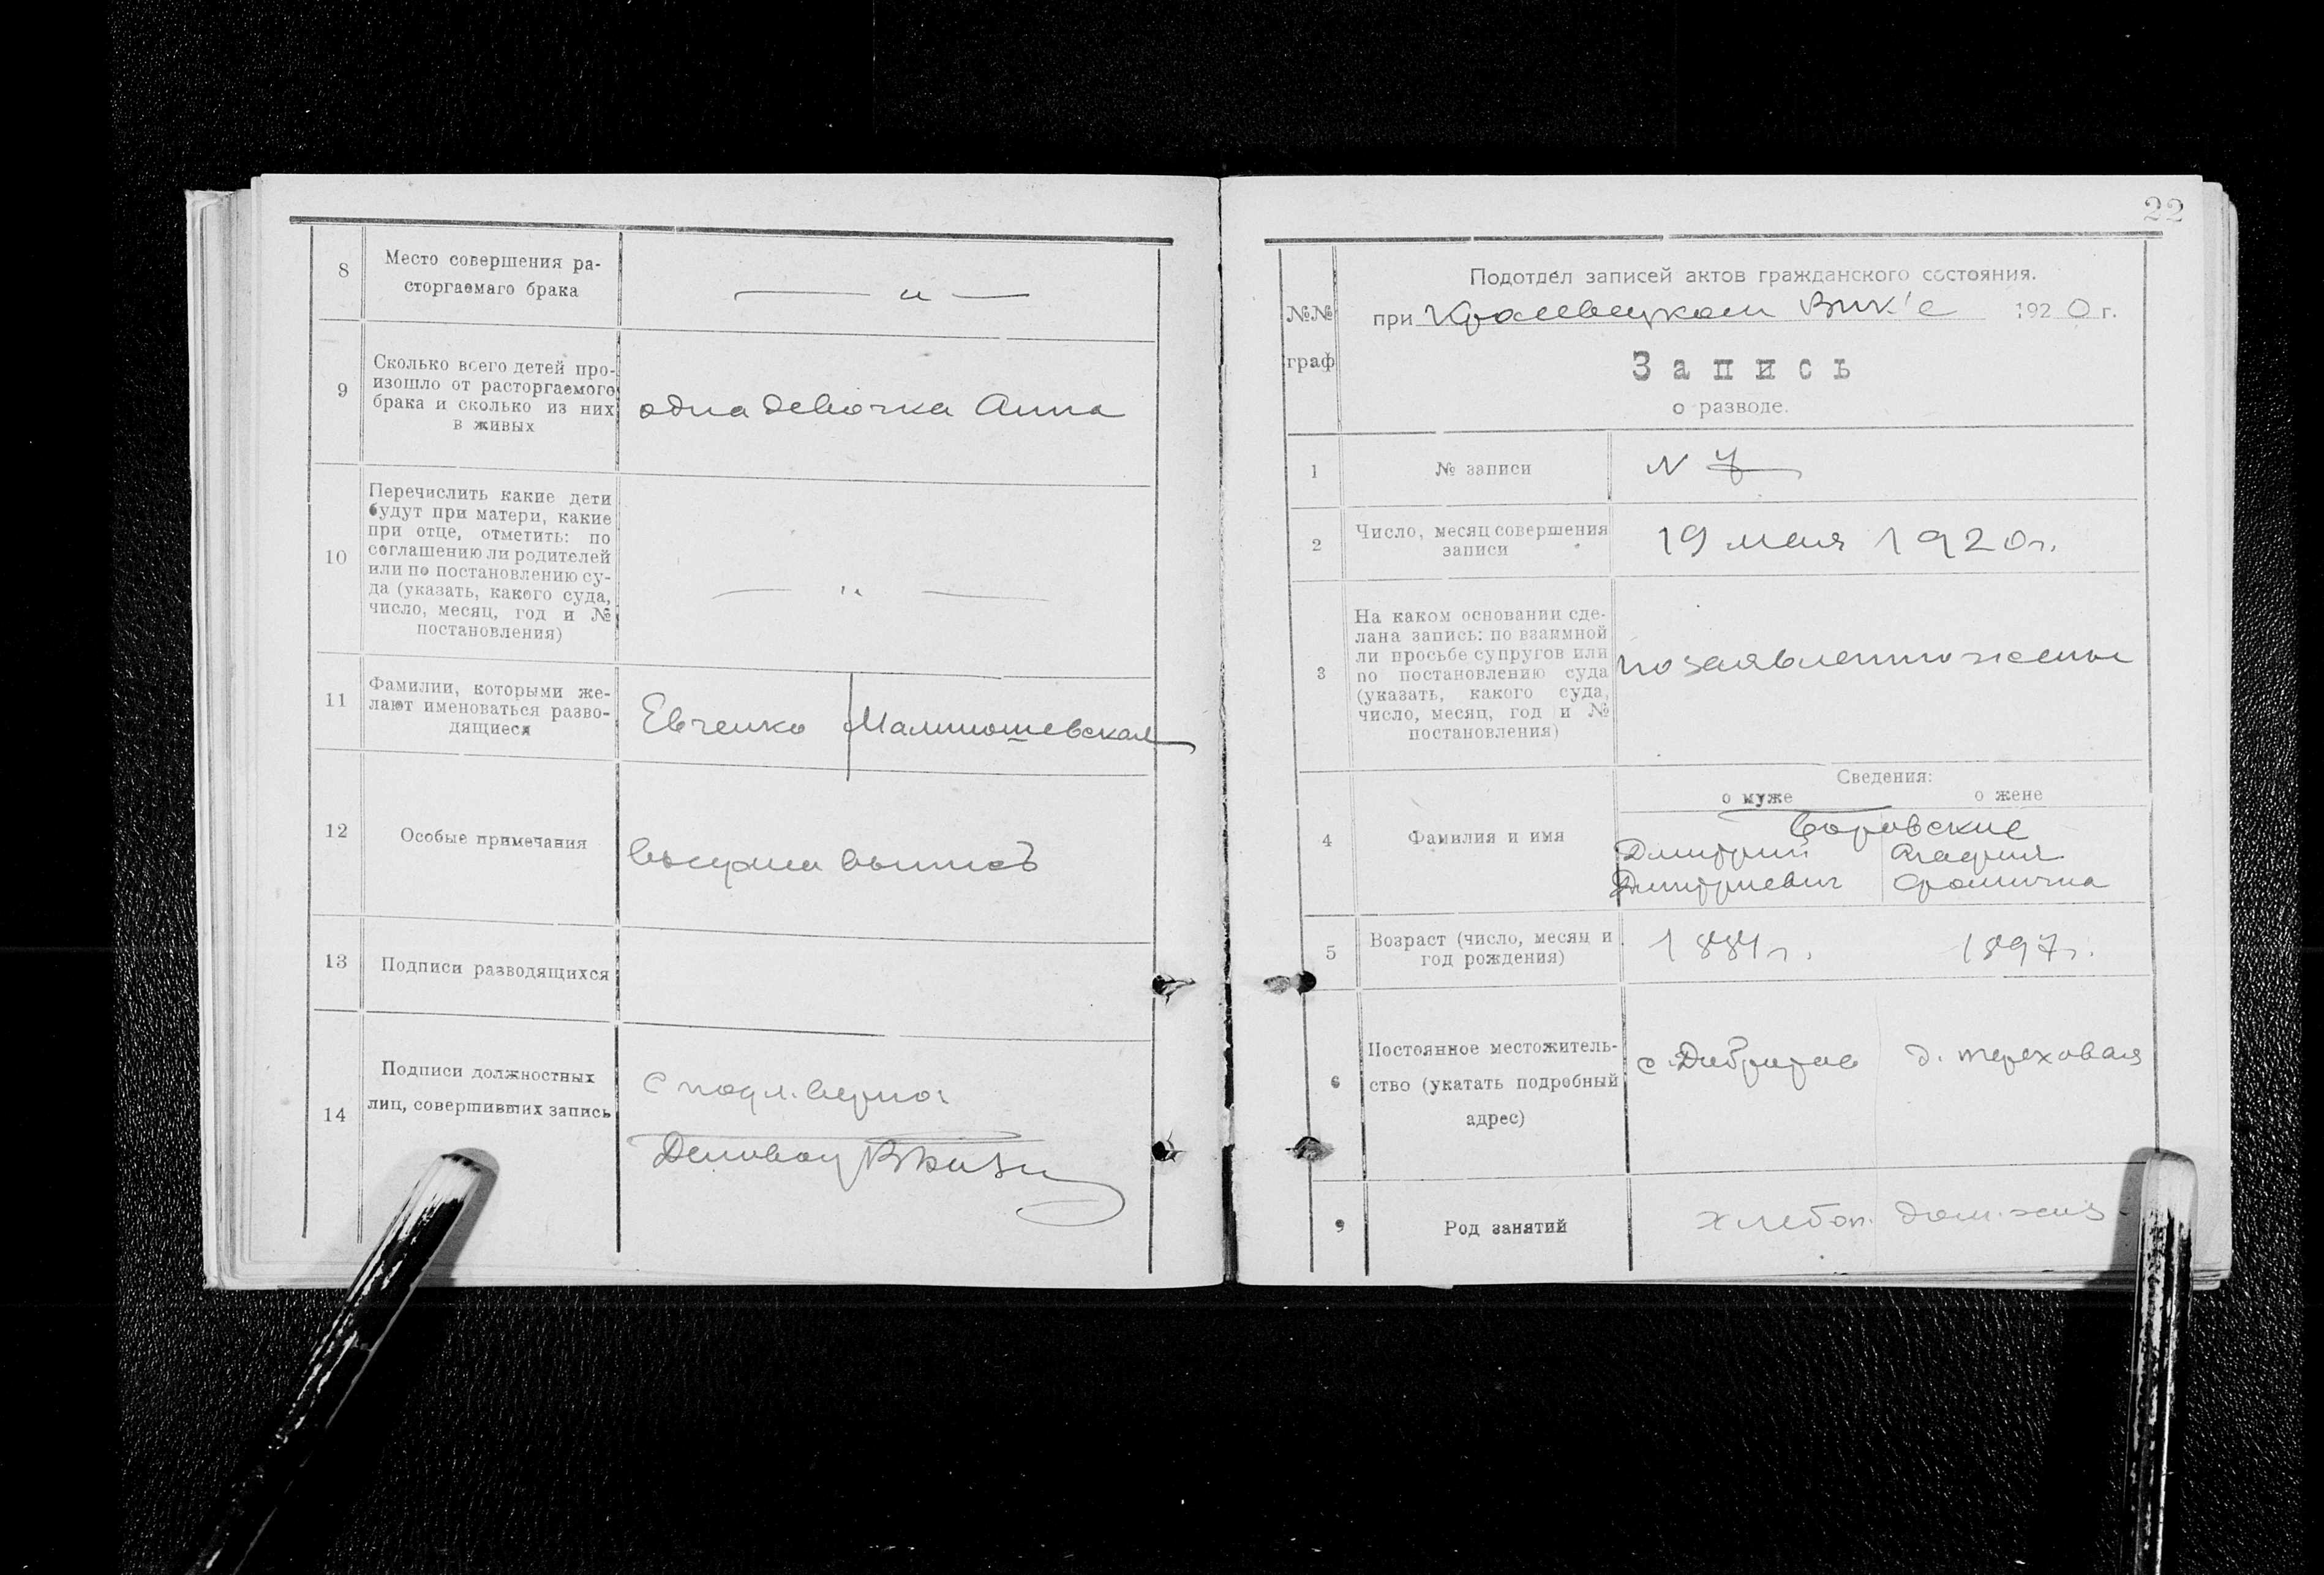 8
Место совершения ра-
сторгаемаго брака
— „ —
9
Сколько всего детей про-
изошло от расторгаемого
брака и сколько из них
в живых
одна девочка Анна
10
Перечислить какие дети
будут при матери, какие
при отце, отметить: по
соглашению ли родителей
или по постановлению су-
да (указать, какого суда,
число, месяц, год и №
постановления)
— „ —
11
Фамилии, которыми же-
лают именоваться разво-
дящиеся
Евченко
12
Особые примечания
выпись
13
Подписи разводящихся
14
Подписи должностных
лиц, совершивших запись
С подл. верно:
22
№№
граф
Подотдел записей актов гражданского состояния.
при Кролевецком Вик'е 1920 г.
Запись
о разводе.
1
№ записи
N 7
2
Число, месяц совершения
записи
19 мая 1920 г.
3
На каком основании сде-
лана запись: по взаимной
ли просьбе супругов или
по постановлению суда
(указать, какого суда,
число, месяц, год и №
постановления)
по заявлению жены
Сведения:
о муже
о жене
4
Фамилия и имя
Боровские
Дмитрий
Агафия
Дмитриевич
5
Возраст (число, месяц и
год рождения)
1884 г.
1897 г.
6
Постоянное местожитель-
ство (укатать подробный
адрес)
д. Тереховая
9
Род занятий
хлебоп.